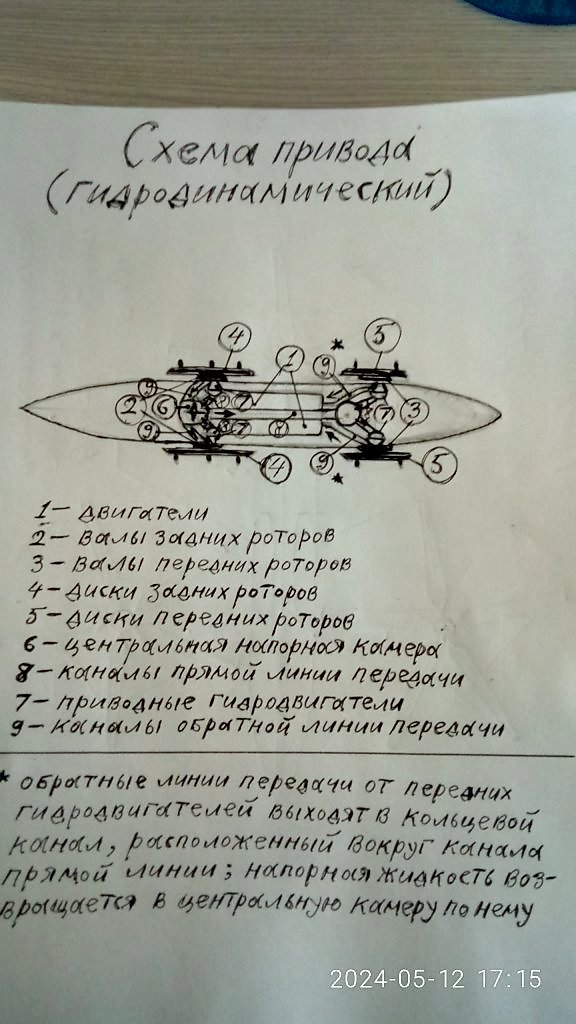 Схема привода
(гидродинамический)
4 1 * 9 5
9 2 6 8 7 8 7 3
9 8 7 4 9 * 5
1 – двигатели
2 – валы задних роторов
3 – валы передних роторов
4 – диски задних роторов
5 – диски передних роторов
6 – центральная напорная камера
8 – каналы прямой линии передачи
7 – приводные гидродвигатели
9 – каналы обратной линии передачи
* обратные линии передачи от передних
гидродвигателей выходят в кольцевой
канал, расположенный вокруг канала
прямой линии; напорная жидкость воз-
вращается в центральную камеру по нему
2024-05-12 17:15